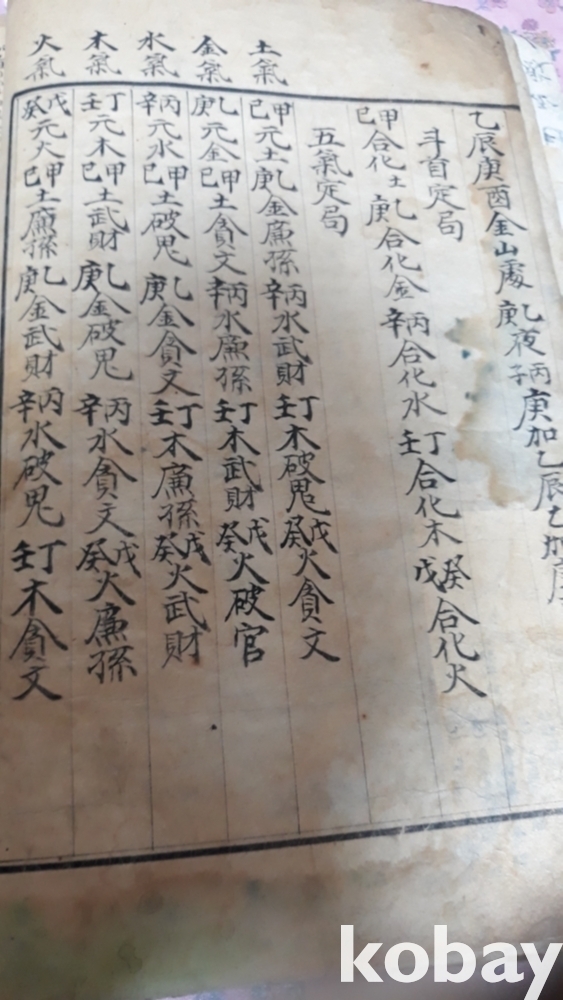 乙辰庚酉金山處乙庚夜丙子庚加乙辰乙加
斗首定局
甲己合化土乙庚合化金丙辛合化水丁壬合化木癸戊合化火
五氣定局
土氣
甲己元土乙庚金廉孫丙辛水武財丁壬木破鬼戊癸火貪文
金氣
乙庚元金甲己土貪文丙辛水廉孫丁壬木武財戊癸火破官
水氣
丙辛元水甲己土破鬼乙庚金貪文丁壬木廉孫戊癸火武財
木氣
丁壬元木甲己土武財乙庚金破鬼丙辛水貪文戊癸火廉孫
火氣
戊癸元火甲己土廉孫乙庚金武財丙辛水破鬼丁壬木貪文
kobay